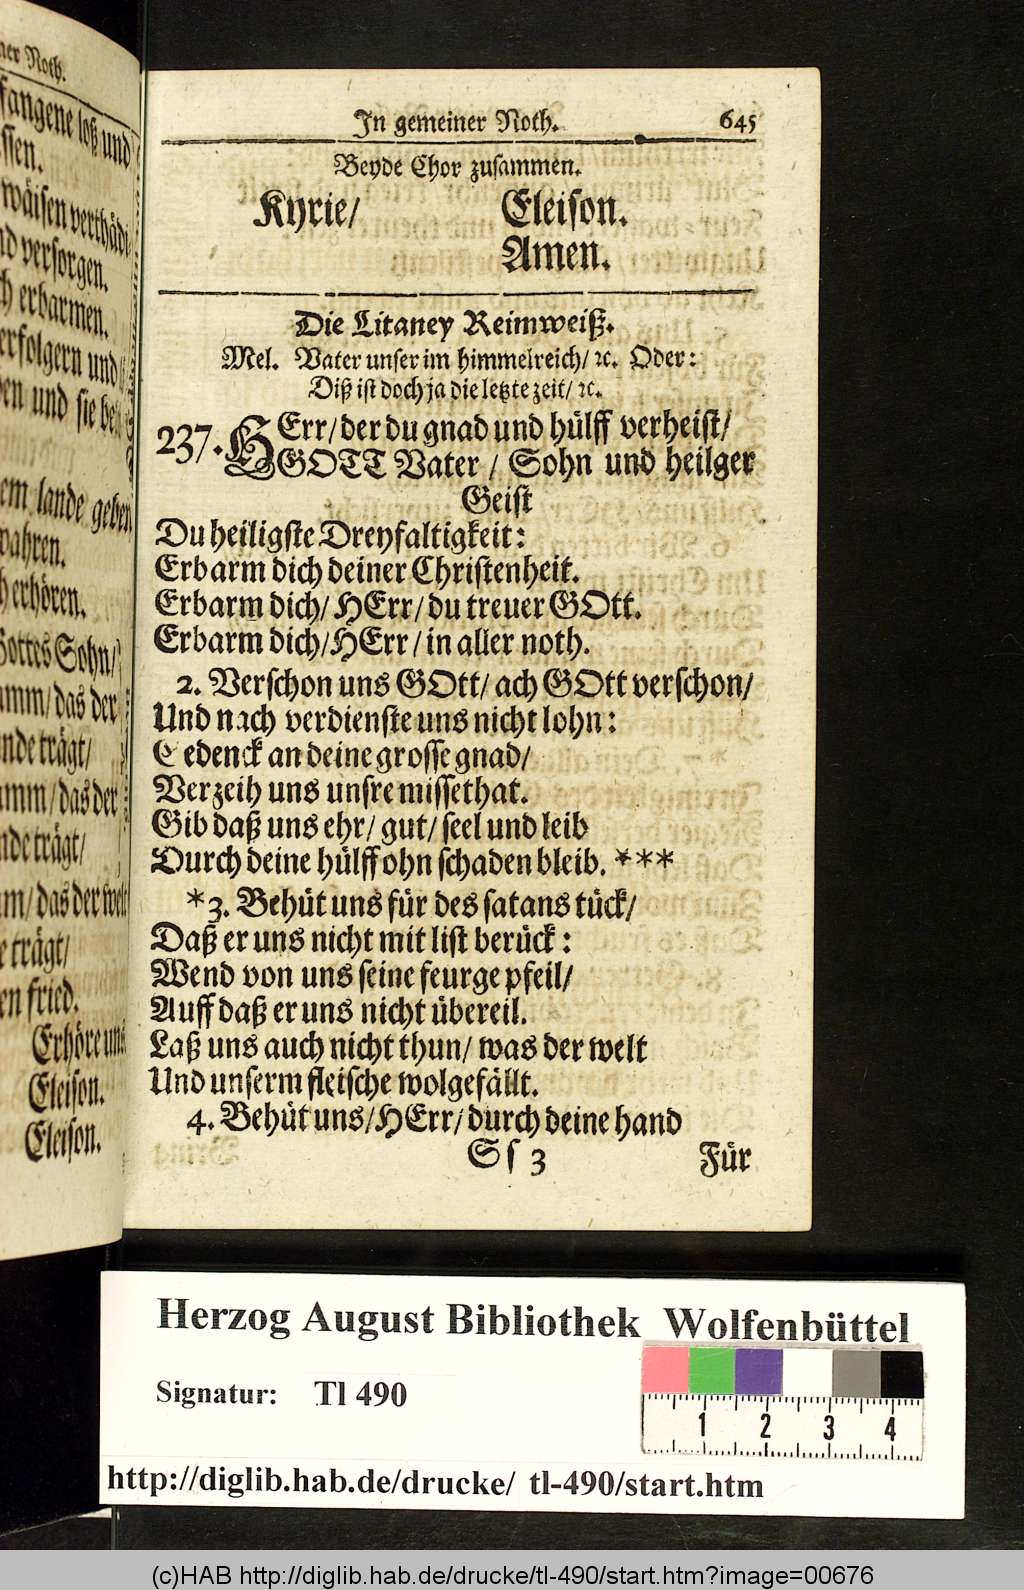 ner Noth.
fangene loß und
ssen.
wäisen verthädi
nd versorgen.
ch erbarmen.
erfolgern und
en und sie be
em lande geben
wahren.
h erhören.
Gottes Sohn/
amm/das der
nde trägt/
amm/das der
nde trägt/
am/das der welt
e trägt/
en fried.
Erhöre uns
Eleison.
Eleison.
In gemeiner Noth. 645
Beyde Chor zusammen.
Kyrie/ Eleison.
Amen.
Die Litaney Reimweiß.
Mel. Vater unser im himmelreich/ ꝛc. Oder:
Diß ist doch ja die letzte zeit/ ꝛc.
237. HErr/der du gnad und hülff verheist/
GOTT Vater / Sohn und heilger
Geist
Du heiligste Dreyfaltigkeit:
Erbarm dich deiner Christenheit.
Erbarm dich/ HErr/ du treuer GOtt.
Erbarm dich/HErr/ in aller noth.
2. Verschon uns GOtt/ ach GOtt verschon/
Und nach verdienste uns nicht lohn:
Gedenck an deine grosse gnad/
Verzeih uns unsre missethat.
Gib daß uns ehr/ gut/ seel und leib
Durch deine hülff ohn schaden bleib. ***
*3. Behüt uns für des satans tück/
Daß er uns nicht mit list berück:
Wend von uns seine feurge pfeil/
Auff daß er uns nicht übereil.
Laß uns auch nicht thun/ was der welt
Und unserm fleische wolgefällt.
4. Behüt uns/HErr/durch deine hand
Ss 3 Für
Herzog August Bibliothek Wolfenbüttel
Signatur: Tl 490
1 2 3 4
http://diglib.hab.de/drucke/ tl-490/start.htm
(c)HAB http://diglib.hab.de/drucke/tl-490/start.htm?image=00676